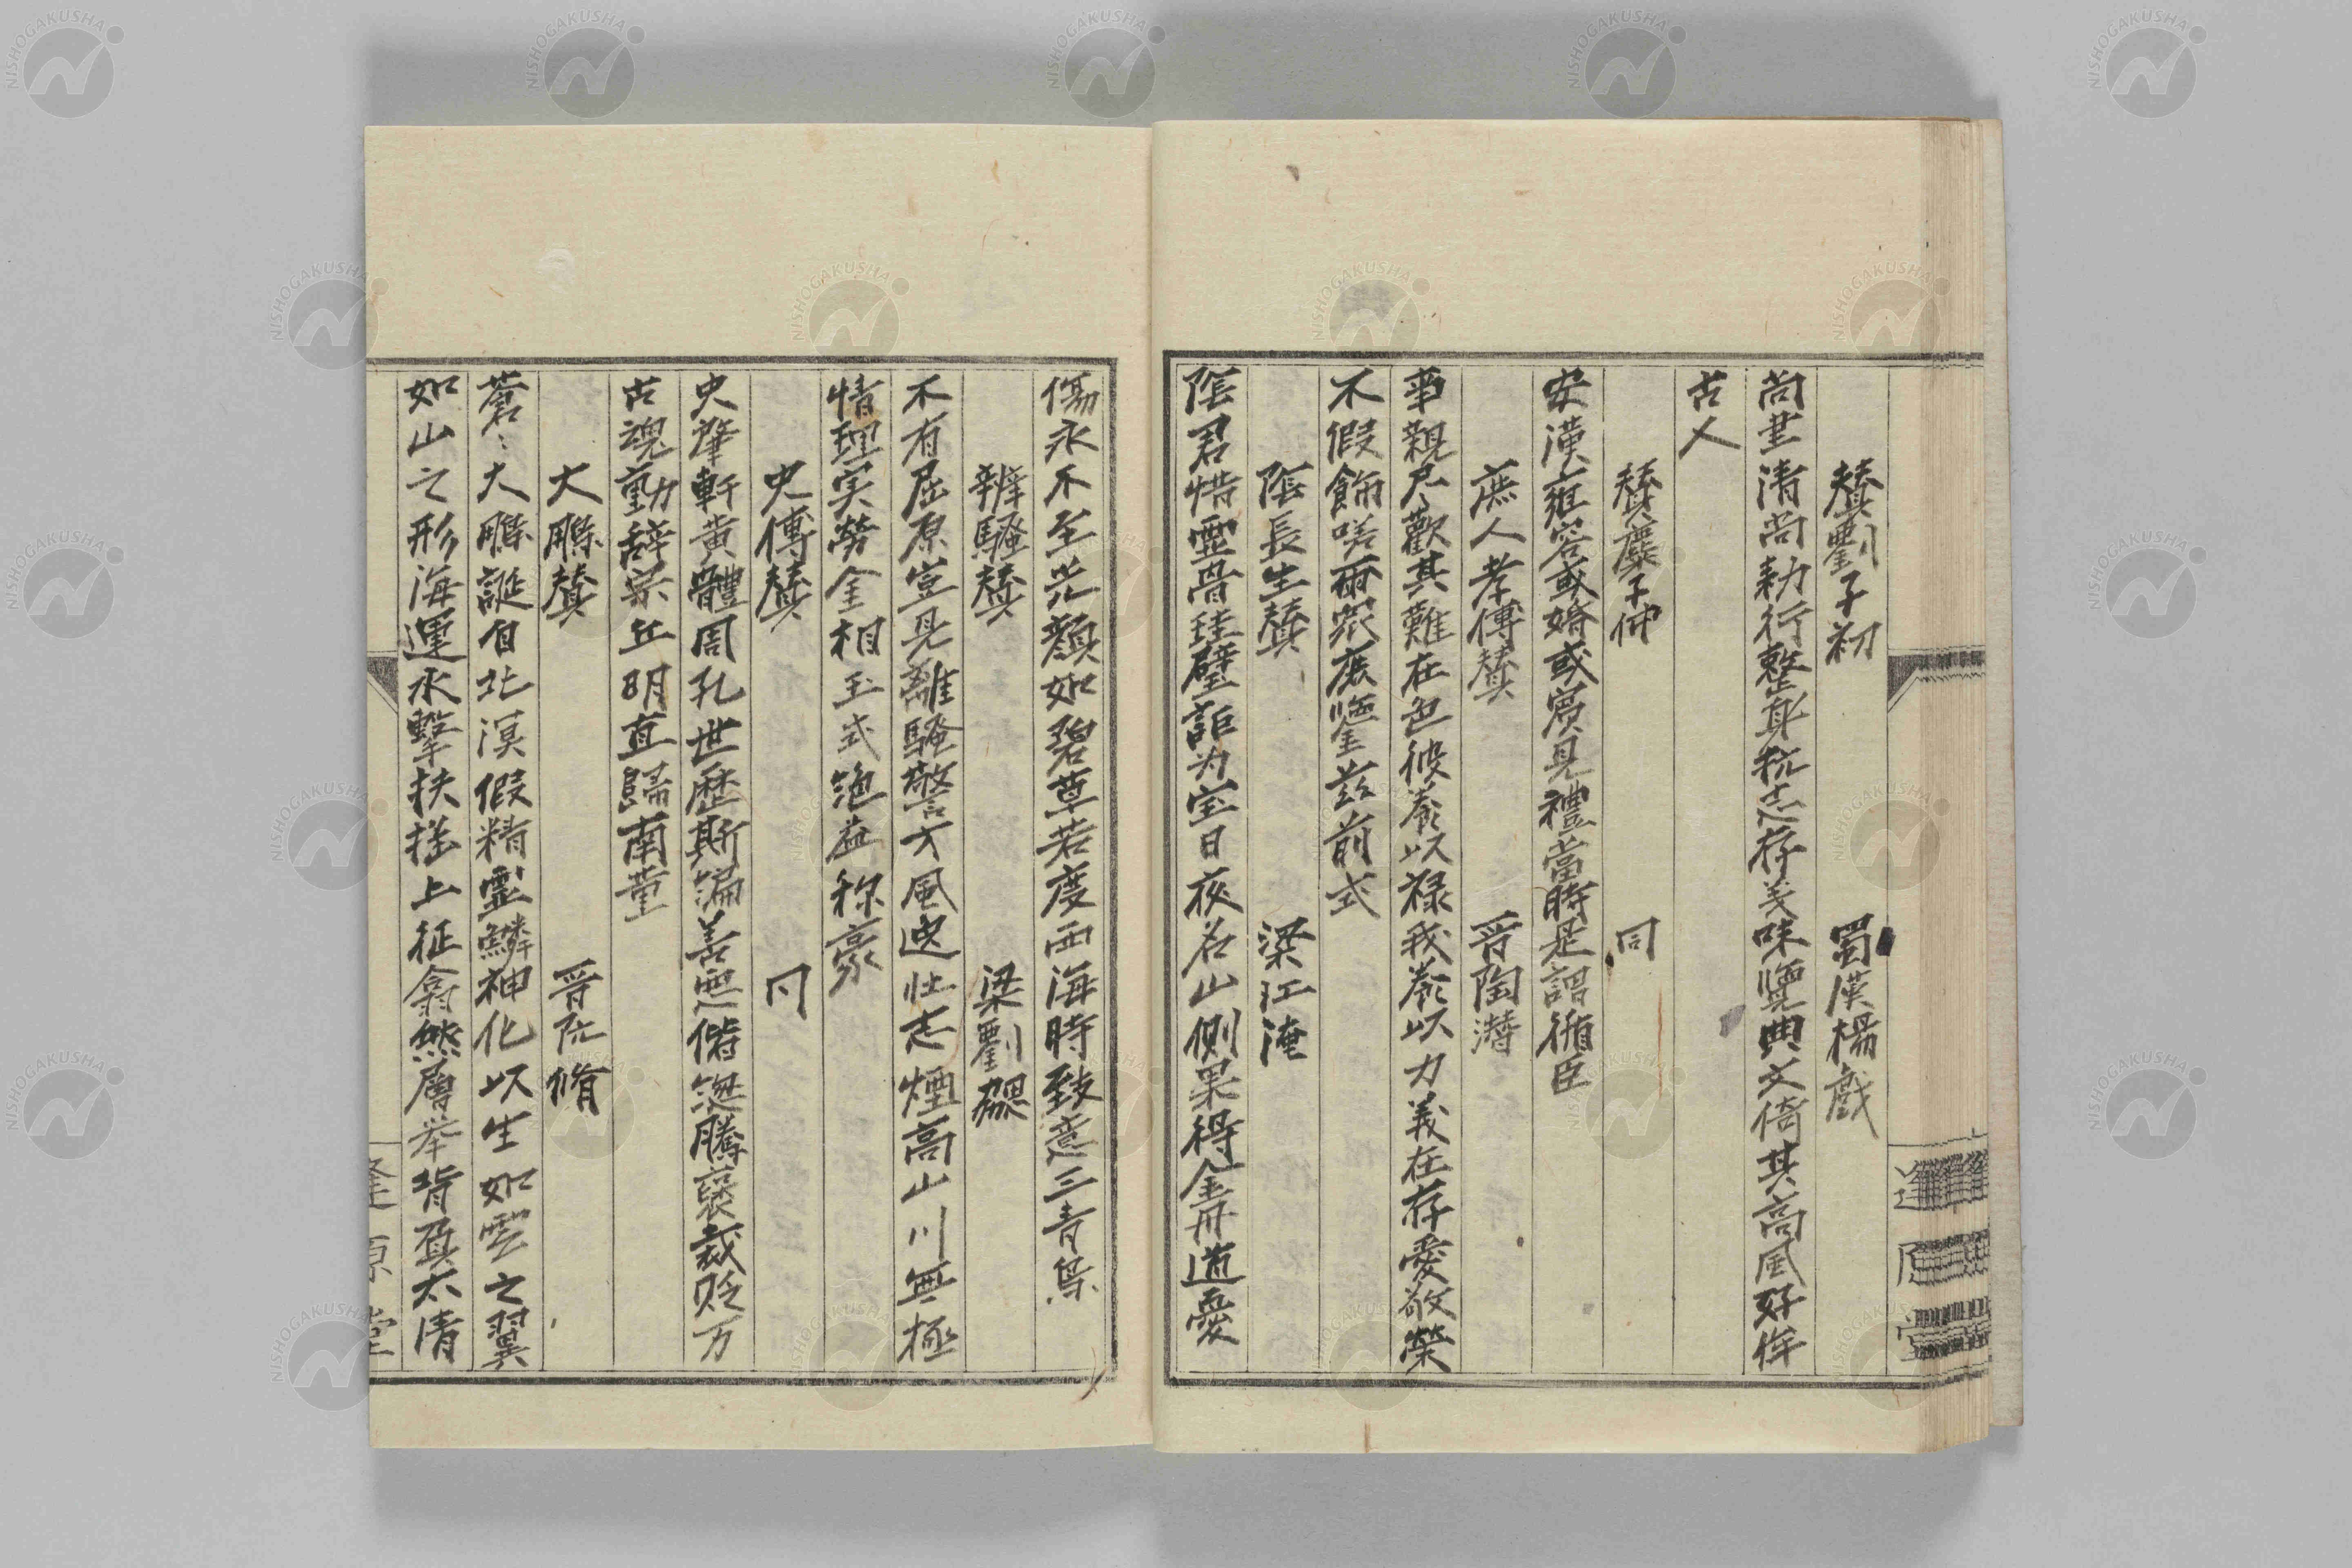 贊劉子初 蜀漢楊戲
尚書清尚勑行整身抗志存義味覽典文倚其高風好侔
古人
贊麋子仲 同
安漢雍容或婚或賓見禮當時是謂循臣
庶人孝傳贊 晉陶潛
事親尽歡其難在色彼養以祿我養以力義在存愛敬榮
不假飾嗟爾衆庶鑒茲前式
陰長生贊 梁江淹
陰君惜靈骨珪璧詎为宝日夜名山側果得金丹道憂
傷永不至光顏如碧草若度西海時致意三青鳥
辨騷贊 梁劉勰
不有屈原豈見離騷警才風逸壮志煙高山川無極
情理实勞金相玉式艶益称豪
史傳贊 同
史肇軒黃體周孔世歷斯編善惡偕惣騰褒裁貶万
古魂動辞宗丘明直歸南董
大鵬贊 晉阮脩
蒼〻大鵬誕自北溟假精靈鱗神化以生如雲之翼
如山之形海運水擊扶搖上征翕然層举背負太清
逢原堂
逢原堂
NISHOGAKUSHA